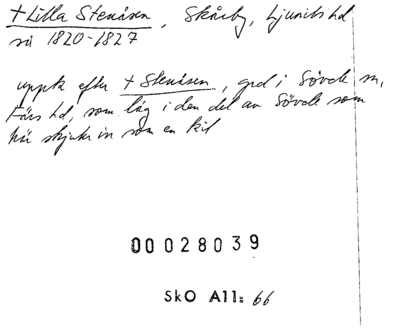 + Lilla Stenåsen, Skårby, Ljunits hd
sú 1820-1827
uppk efter + Stenåsen, grd i Sövde sn,
Färs hd, som låg i den del av Sövde som
här skjuter in som en kil
00028039
SkO A11: 66